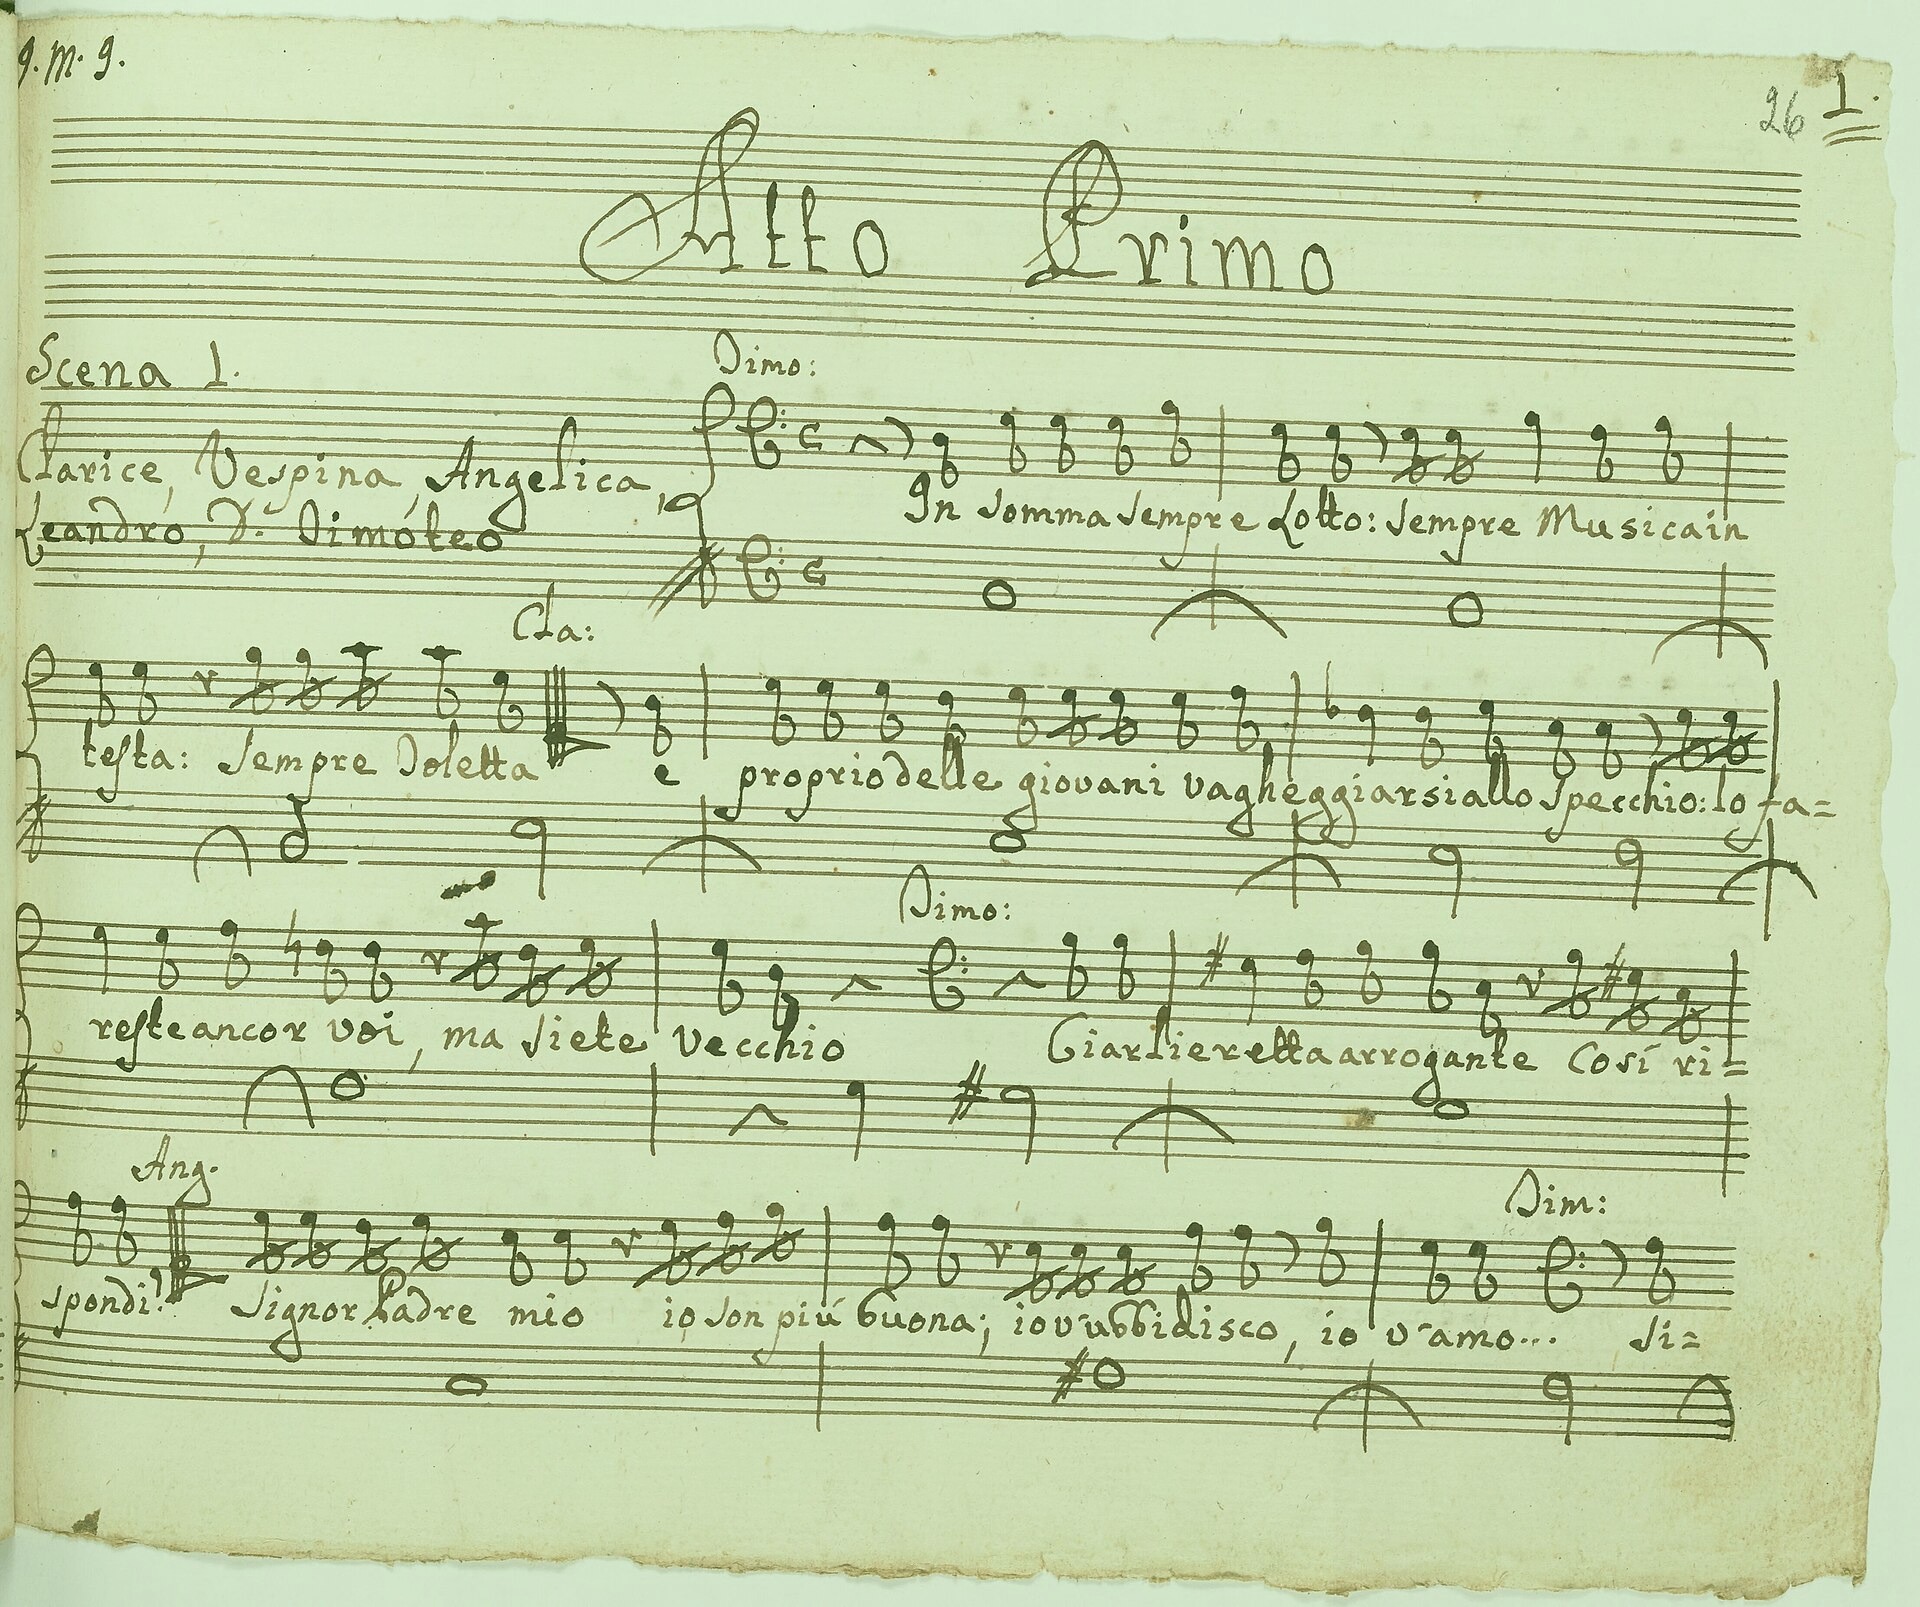 J. M. J.
26 1.
Atto Primo
Scena 1.
Dimo:
Clarice, Vespina, Angelica,
Leandro, D. Dimóteo
In somma sempre Lotto: sempre Musica in
Cla:
testa: sempre Toletta e proprio delle giovani vagheggiarsi allo specchio: lo fa=
Dimo:
reste ancor voi, ma siete vecchio Ciarlieretta arrogante Così ri=
Ang.
Dim:
spondi! Signor Padre mio io son più buona; io v'ubbidisco, io v'amo... si=